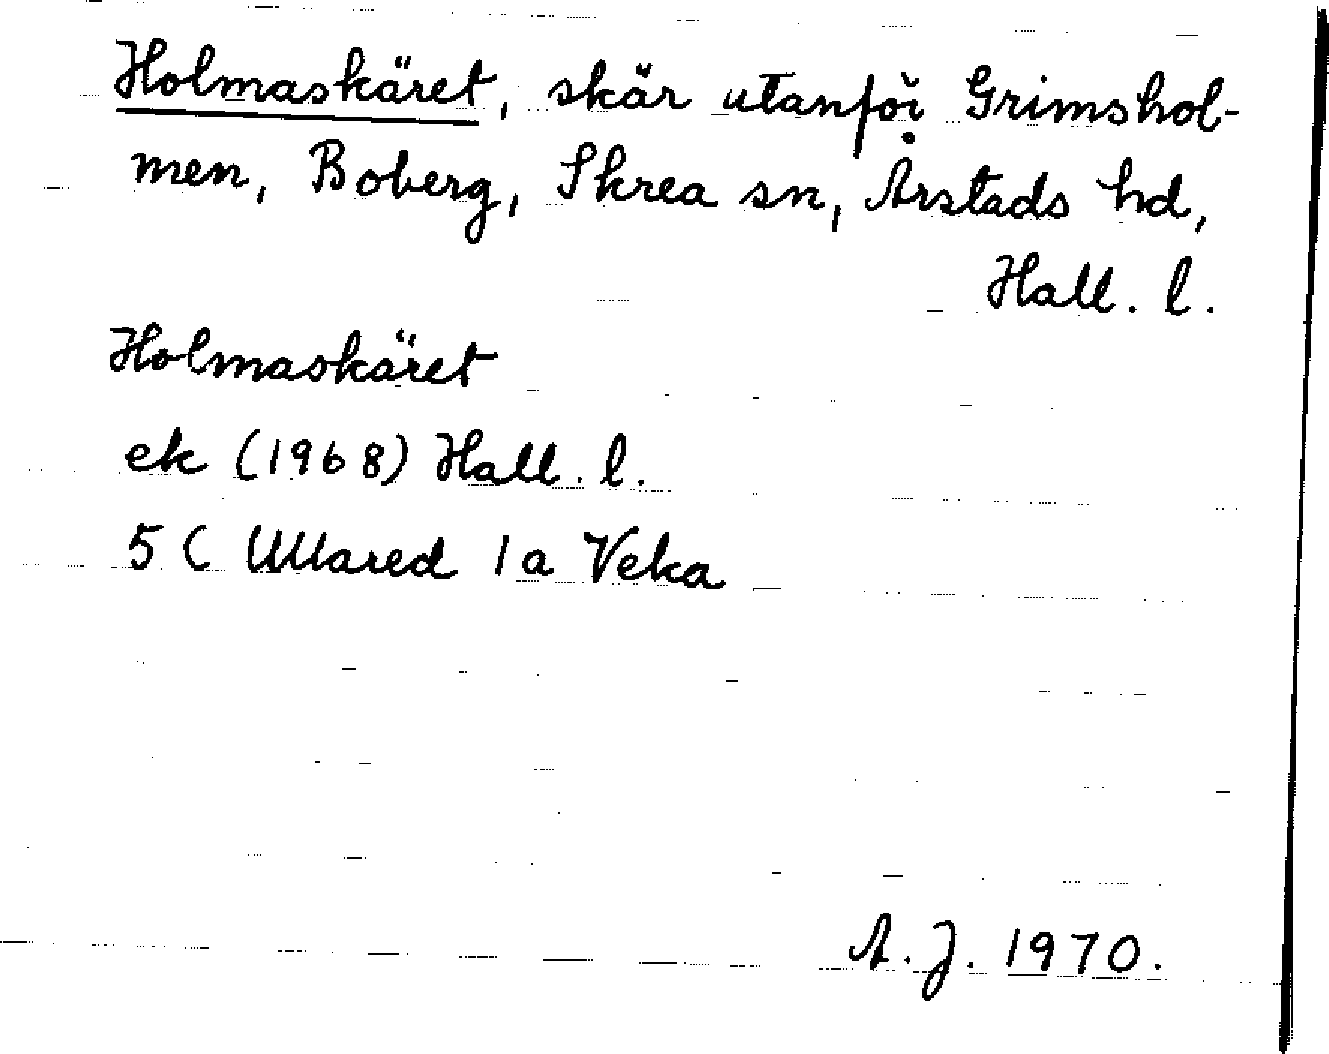 Holmaskäret, skär utanför Grimshol-
men, Boberg, Skrea sn, Årstads hd,
Hall. l.
Holmaskäret
ek (1968) Hall. l.
5 C Ullared 1 a Veka
A. J. 1970.